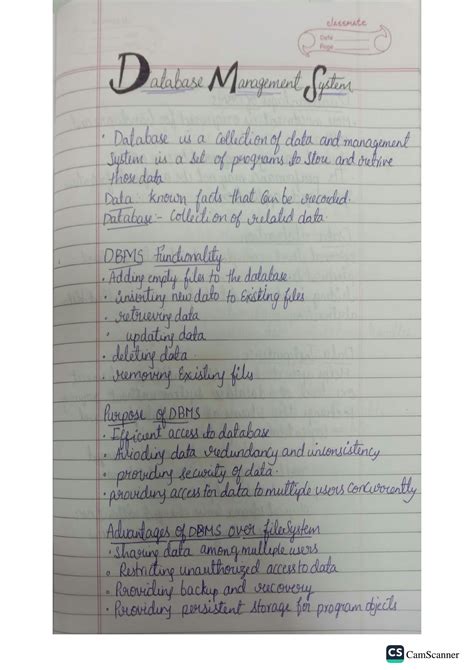 classmate
Date
Page
Database Management System
• Database is a Collection of data and management
System is a set of programs to store and retrive
those data
Data known facts that Can be recorded.
Database:- Collection of related data.
DBMS Functionality
• Adding empty files to the database
• inserting new data to Existing files
• retrieving data
• updating data
• deleting data
• removing Existing files
Purpose of DBMS
• Efficient access to database
• Avioding data redundancy and inconsistency
• providing security of data.
• providing access for data to multiple users Concurrently
Advantages of DBMS over fileSystem
• Sharing data among multiple users
• Restricting unauthorized access to data
• Providing backup and recovery
• Providing persistent Storage for program objects
CS CamScanner